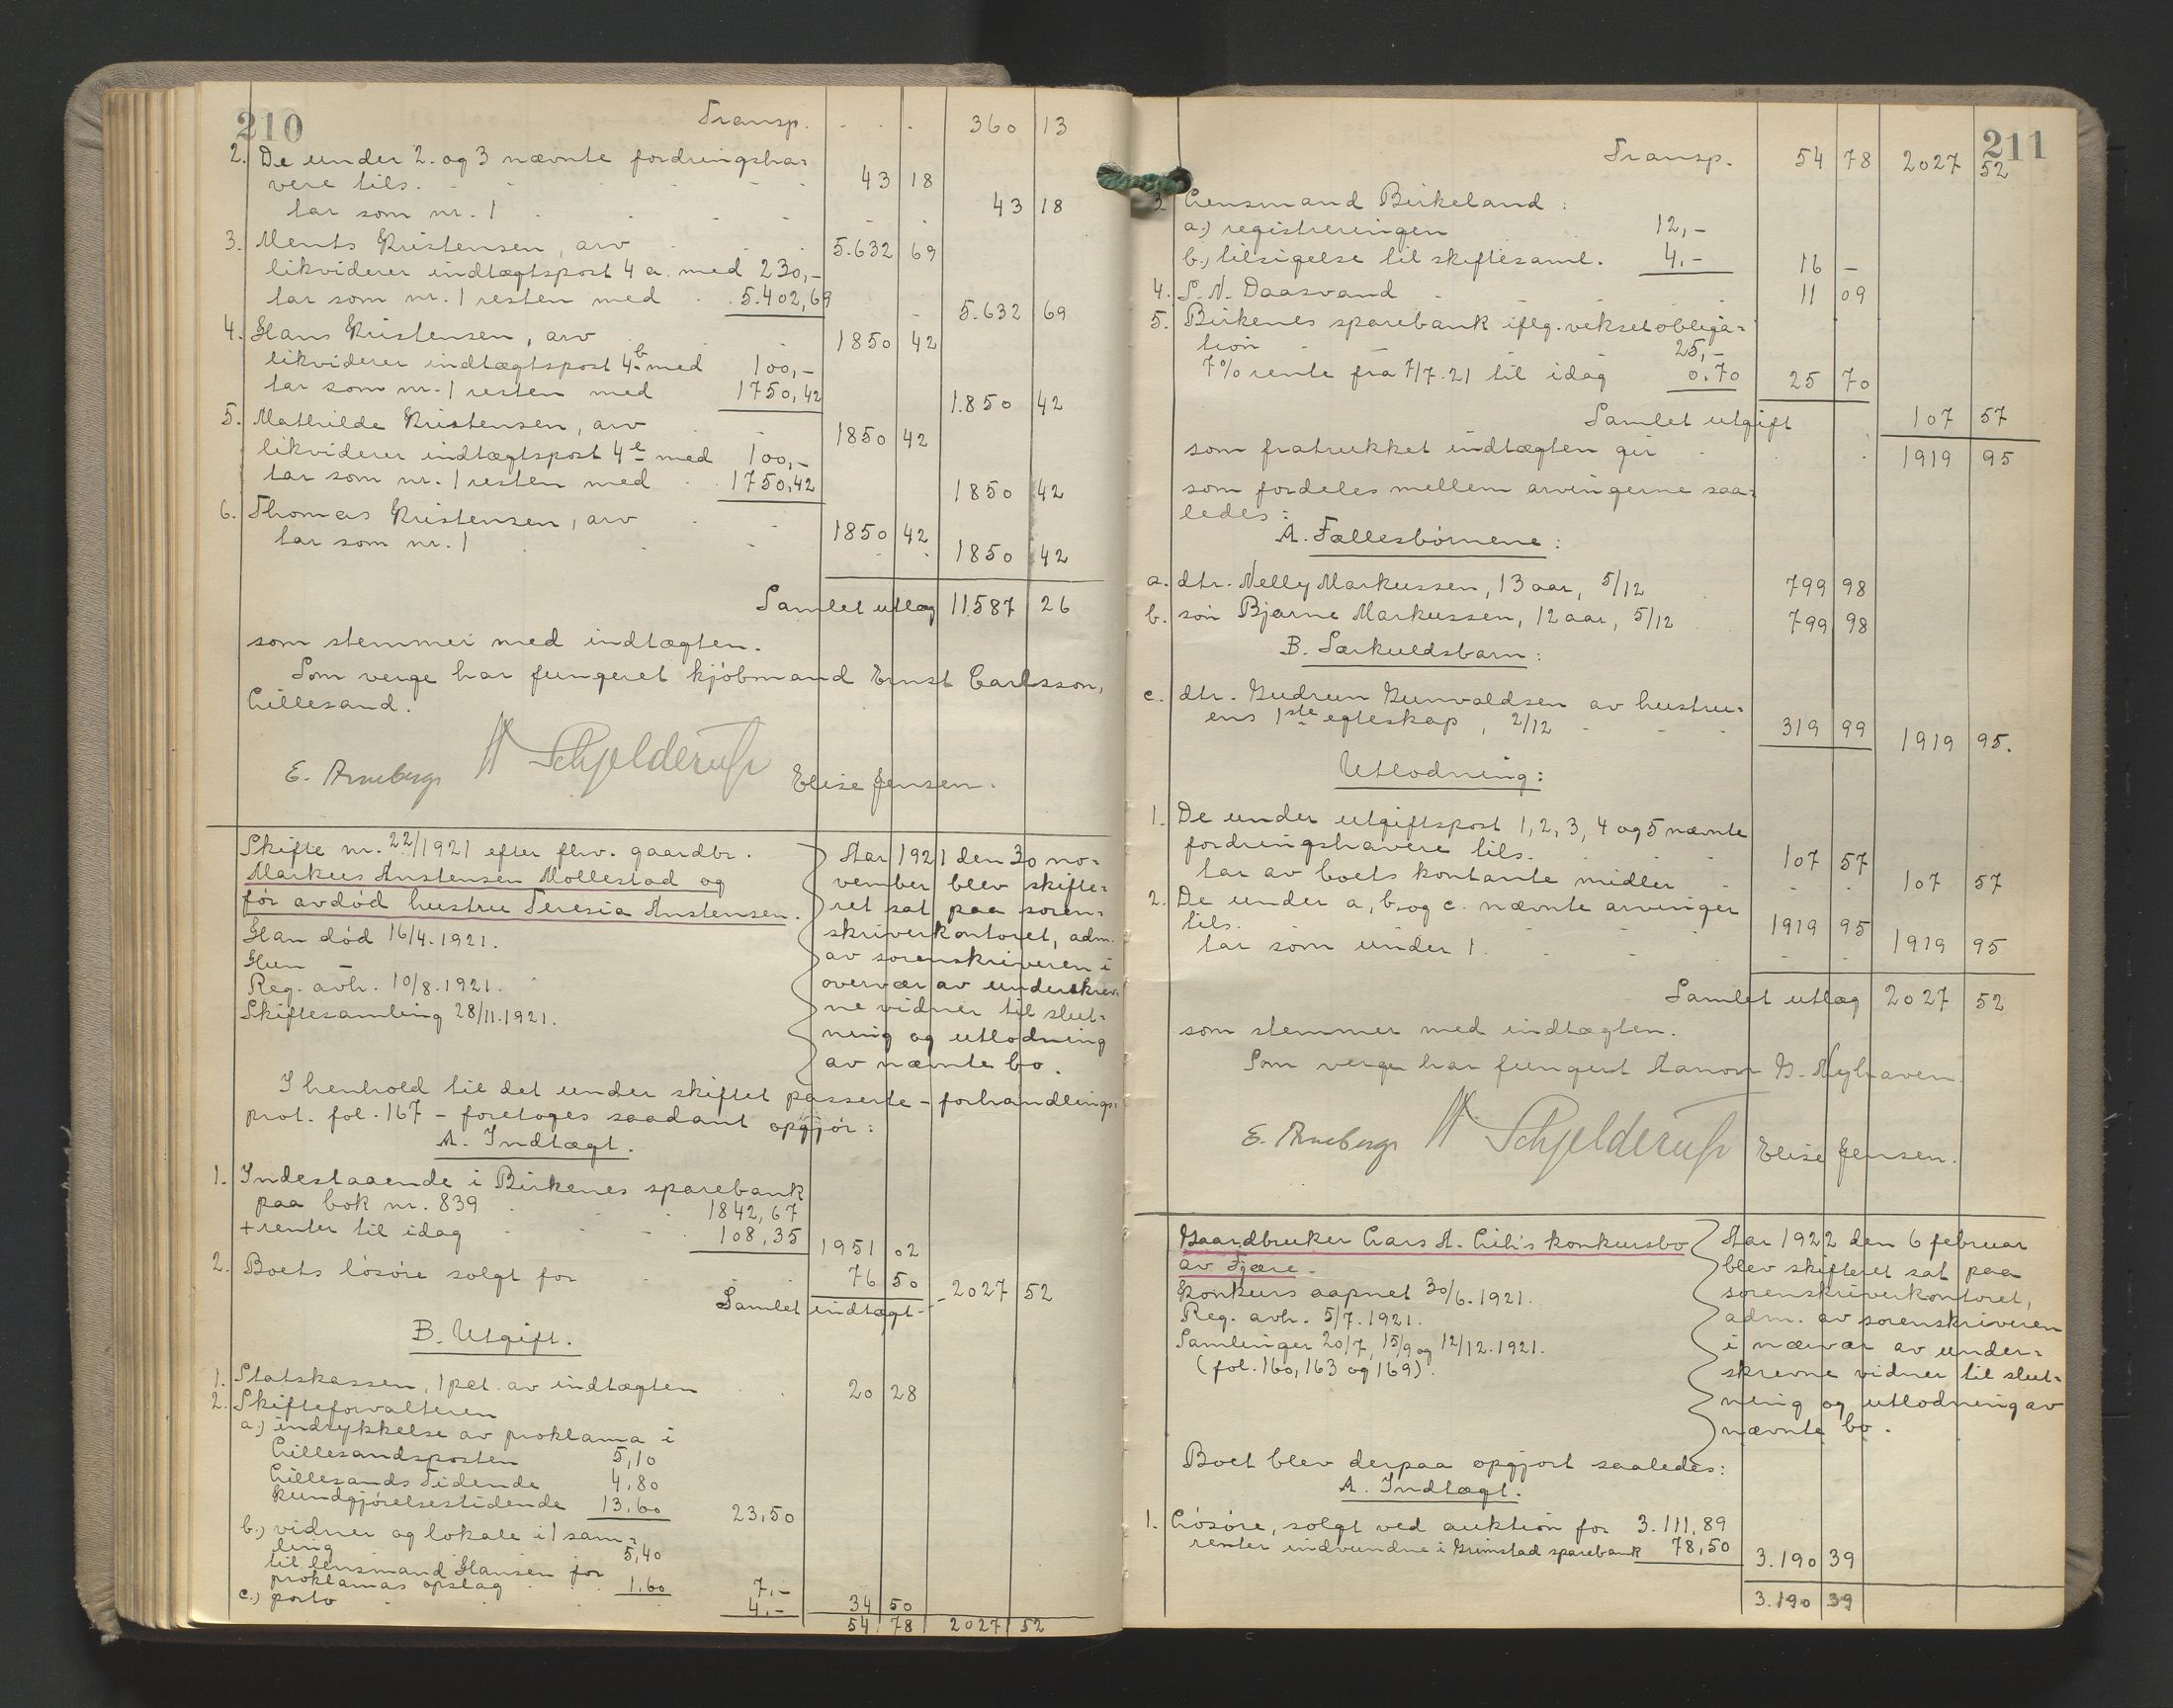 210
Transp. . . . 360 13
2. De under 2. og 3 nævnte fordringsha=
vere tils. 43 18
tar som nr. 1 43 18
3. Ments Kristensen, arv 5.632 69
likviderer indtægtspost 4 a. med 230,-
tar som nr. 1 resten med 5.402,69 5.632 69
4. Hans Kristensen, arv 1850 42
likviderer indtægtspost 4 b. med 100,-
tar som nr. 1 resten med 1750,42 1.850 42
5. Mathilde Kristensen, arv 1850 42
likviderer indtægtspost 4 c med 100,-
tar som nr. 1 resten med 1750,42 1850 42
6. Thomas Kristensen, arv 1850 42
tar som nr. 1 1850 42
Samlet utlæg 11.587 26
som stemmer med indtægten.
Som verge har fungeret kjøbmand Ernst Carlsson,
Lillesand.
E. Arneberg A Schjelderup Elise Jensen.
Skifte nr. 22/1921 efter fhv. gaardbr.
Markus Anstensen Mollestad og
før avdød hustru Teresia Anstensen.
Han død 16/4.1921.
Hun –
Reg. avh. 10/8.1921.
Skiftesamling 28/11.1921.
Aar 1921 den 30 no=
vember blev skifte=
ret sat paa soren=
skriverkontoret, adm.
av sorenskriveren i
overvær av underskrev=
ne vidner til slut=
ning og utlodning
av nævnte bo.
I henhold til det under skiftet passerte - forhandlings=
prot. fol. 167 - foretoges saadant opgjør:
A. Indtægt.
1. Indestaaende i Birkenes sparebank
paa bok nr. 839 1842,67
+ renter til idag 108,35 1951 02
2. Boets løsøre solgt for 76 50
Samlet indtægt 2027 52
B. Utgift.
1. Statskassen, 1 pct. av indtægten 20 28
2. Skifteforvalteren
a.) indrykkelse av proklama i
Lillesandsposten 5,10
Lillesands Tidende 4,80
Kundgjørelsestidende 13,60 23,50
b.) vidner og lokale i 1 sam=
ling 5,40
til lensmand Hansen for
proklamas opslag 1.60 7,-
c.) porto 4,- 34 50
54 78 2027 52
211
Transp. 54 78 2027 52
3. Lensmand Birkeland:
a.) registreringen 12,-
b.) tilsigelse til skiftesaml. 4.- 16 -
4. S. N. Daasvand 11 09
5. Birkenes sparebank iflg. vekselobliga=
tion 25,-
7% rente fra 7/7.21 til idag 0.70 25 70
Samlet utgift 107 57
som fratrukket indtægten gir 1919 95
som fordeles mellem arvingerne saa=
ledes:
A. Fællesbørnene:
a. dtr. Nelly Markussen, 13 aar, 5/12 799 98
b. søn Bjarne Markussen, 12 aar, 5/12 799 98
B. Særkuldsbarn:
c. dtr. Gudrun Gunvaldsen av hustru=
ens 1ste egteskap, 2/12 319 99 1919 95.
Utlodning:
1. De under utgiftspost 1, 2, 3, 4 og 5 nævnte
fordringshavere tils. 107 57
tar av boets kontante midler 107 57
2. De under a, b, og c. nævnte arvinger
tils. 1919 95
tar som under 1. 1919 95
Samlet utlæg 2027 52
som stemmer med indtægten.
Som verge har fungert Aanon G. Nyhaven.
E. Arneberg A Schjelderup Elise Jensen.
Gaardbruker Lars A. Lih's konkursbo
av Fjære.
Konkurs aapnet 30/6.1921.
Reg. avh. 5/7.1921.
Samlinger 20/7, 15/9 og 12/12.1921.
(fol. 160, 163 og 169).
Aar 1922 den 6 februar
blev skifteret sat paa
sorenskriverkontoret,
adm. av sorenskriveren
i nærvær av under=
skrevne vidner til slut=
ning og utlodning av
nævnte bo.
Boet blev derpaa opgjort saaledes:
A. Indtægt.
1. Løsøre, solgt ved auktion for 3.111.89
renter indvundne i Grimstad sparebank 78,50 3.190 39
3.190 39